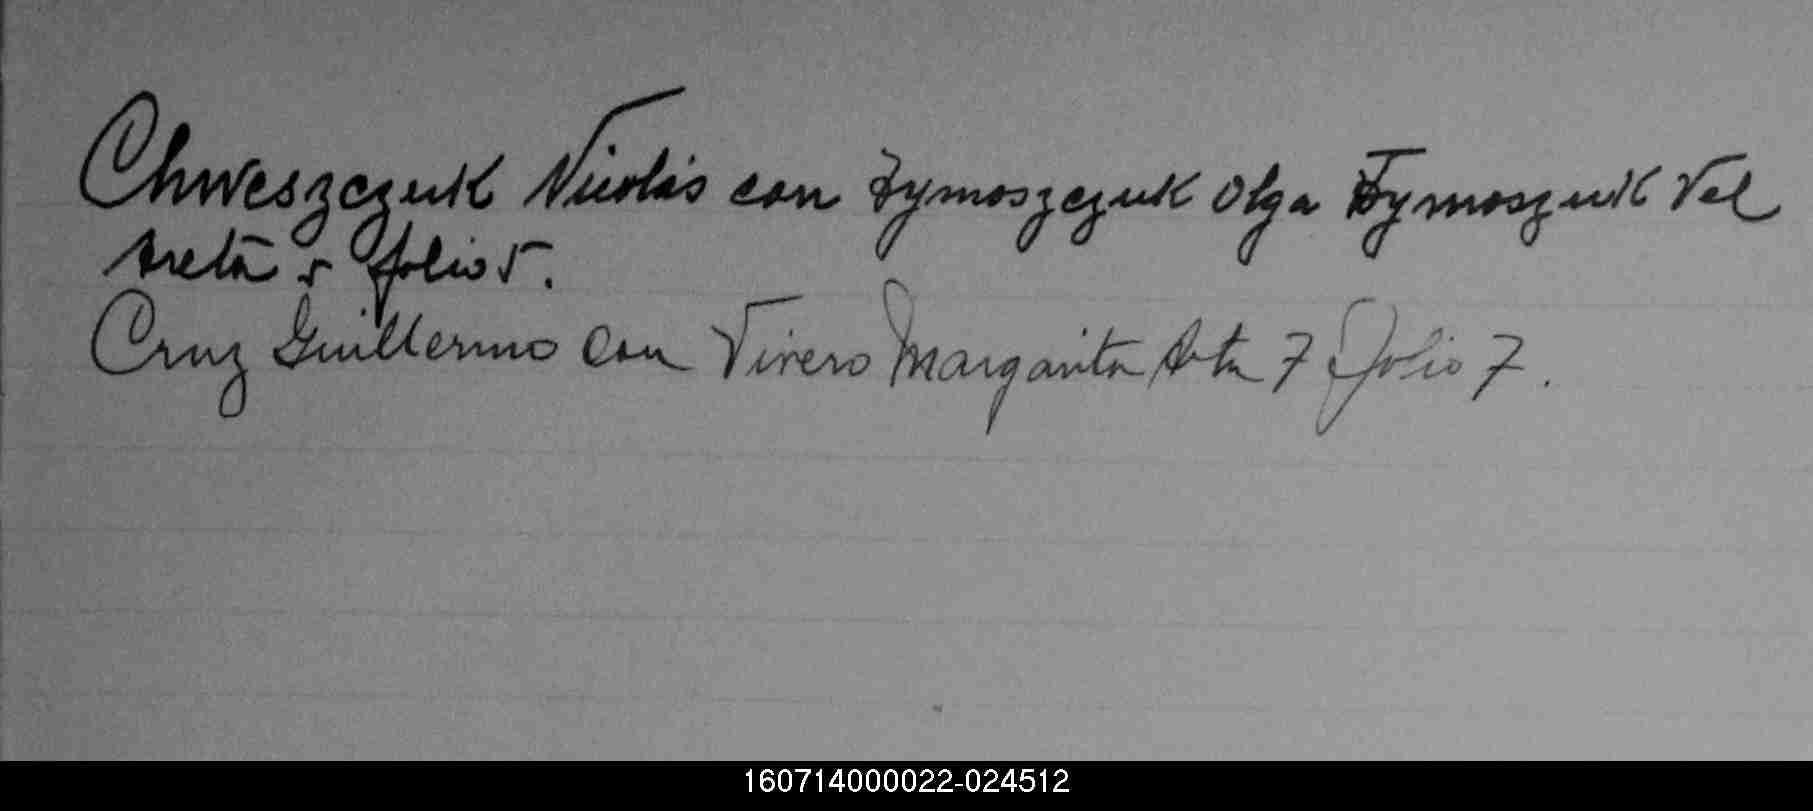 Chweszczuk Nicolás con Tymoszczuk Olga Tymoszuk Vel
Areta 5 folio 5.
Cruz Guillermo Con Vivero Margarita Acta 7 folio 7.
160714000022-024512